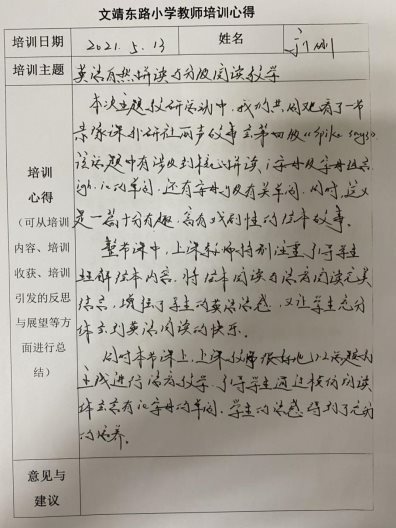 文靖东路小学教师培训心得
培训日期 2021.5.13 姓名
培训主题 英语自然拼读与分级阅读教学
培训
心得
（可从培训
内容、培训
收获、培训
引发的反思
与展望等方
面进行总
结）
本次主题教研活动中，我们共同观看了一节
外研社丽声故事会第四级《Spike says》
该课题中有涉及到核心拼读，i字母及字母组合
igh、ie的单词，还有字母y及有关单词，同时，这又
是一篇十分有趣，富有戏剧性的绘本故事。
整节课中，上课教师特别注重引导学生
理解绘本内容，将绘本阅读与语音阅读完美
结合，增强了学生的英语语感，又让学生充分
体会到英语阅读的快乐。
同时本节课上，上课教师很好地以话题为
主线进行语音教学，引导学生通过模仿阅读，
体会含有i字母的单词，学生的语感得到了充分
的培养。
意见与
建议